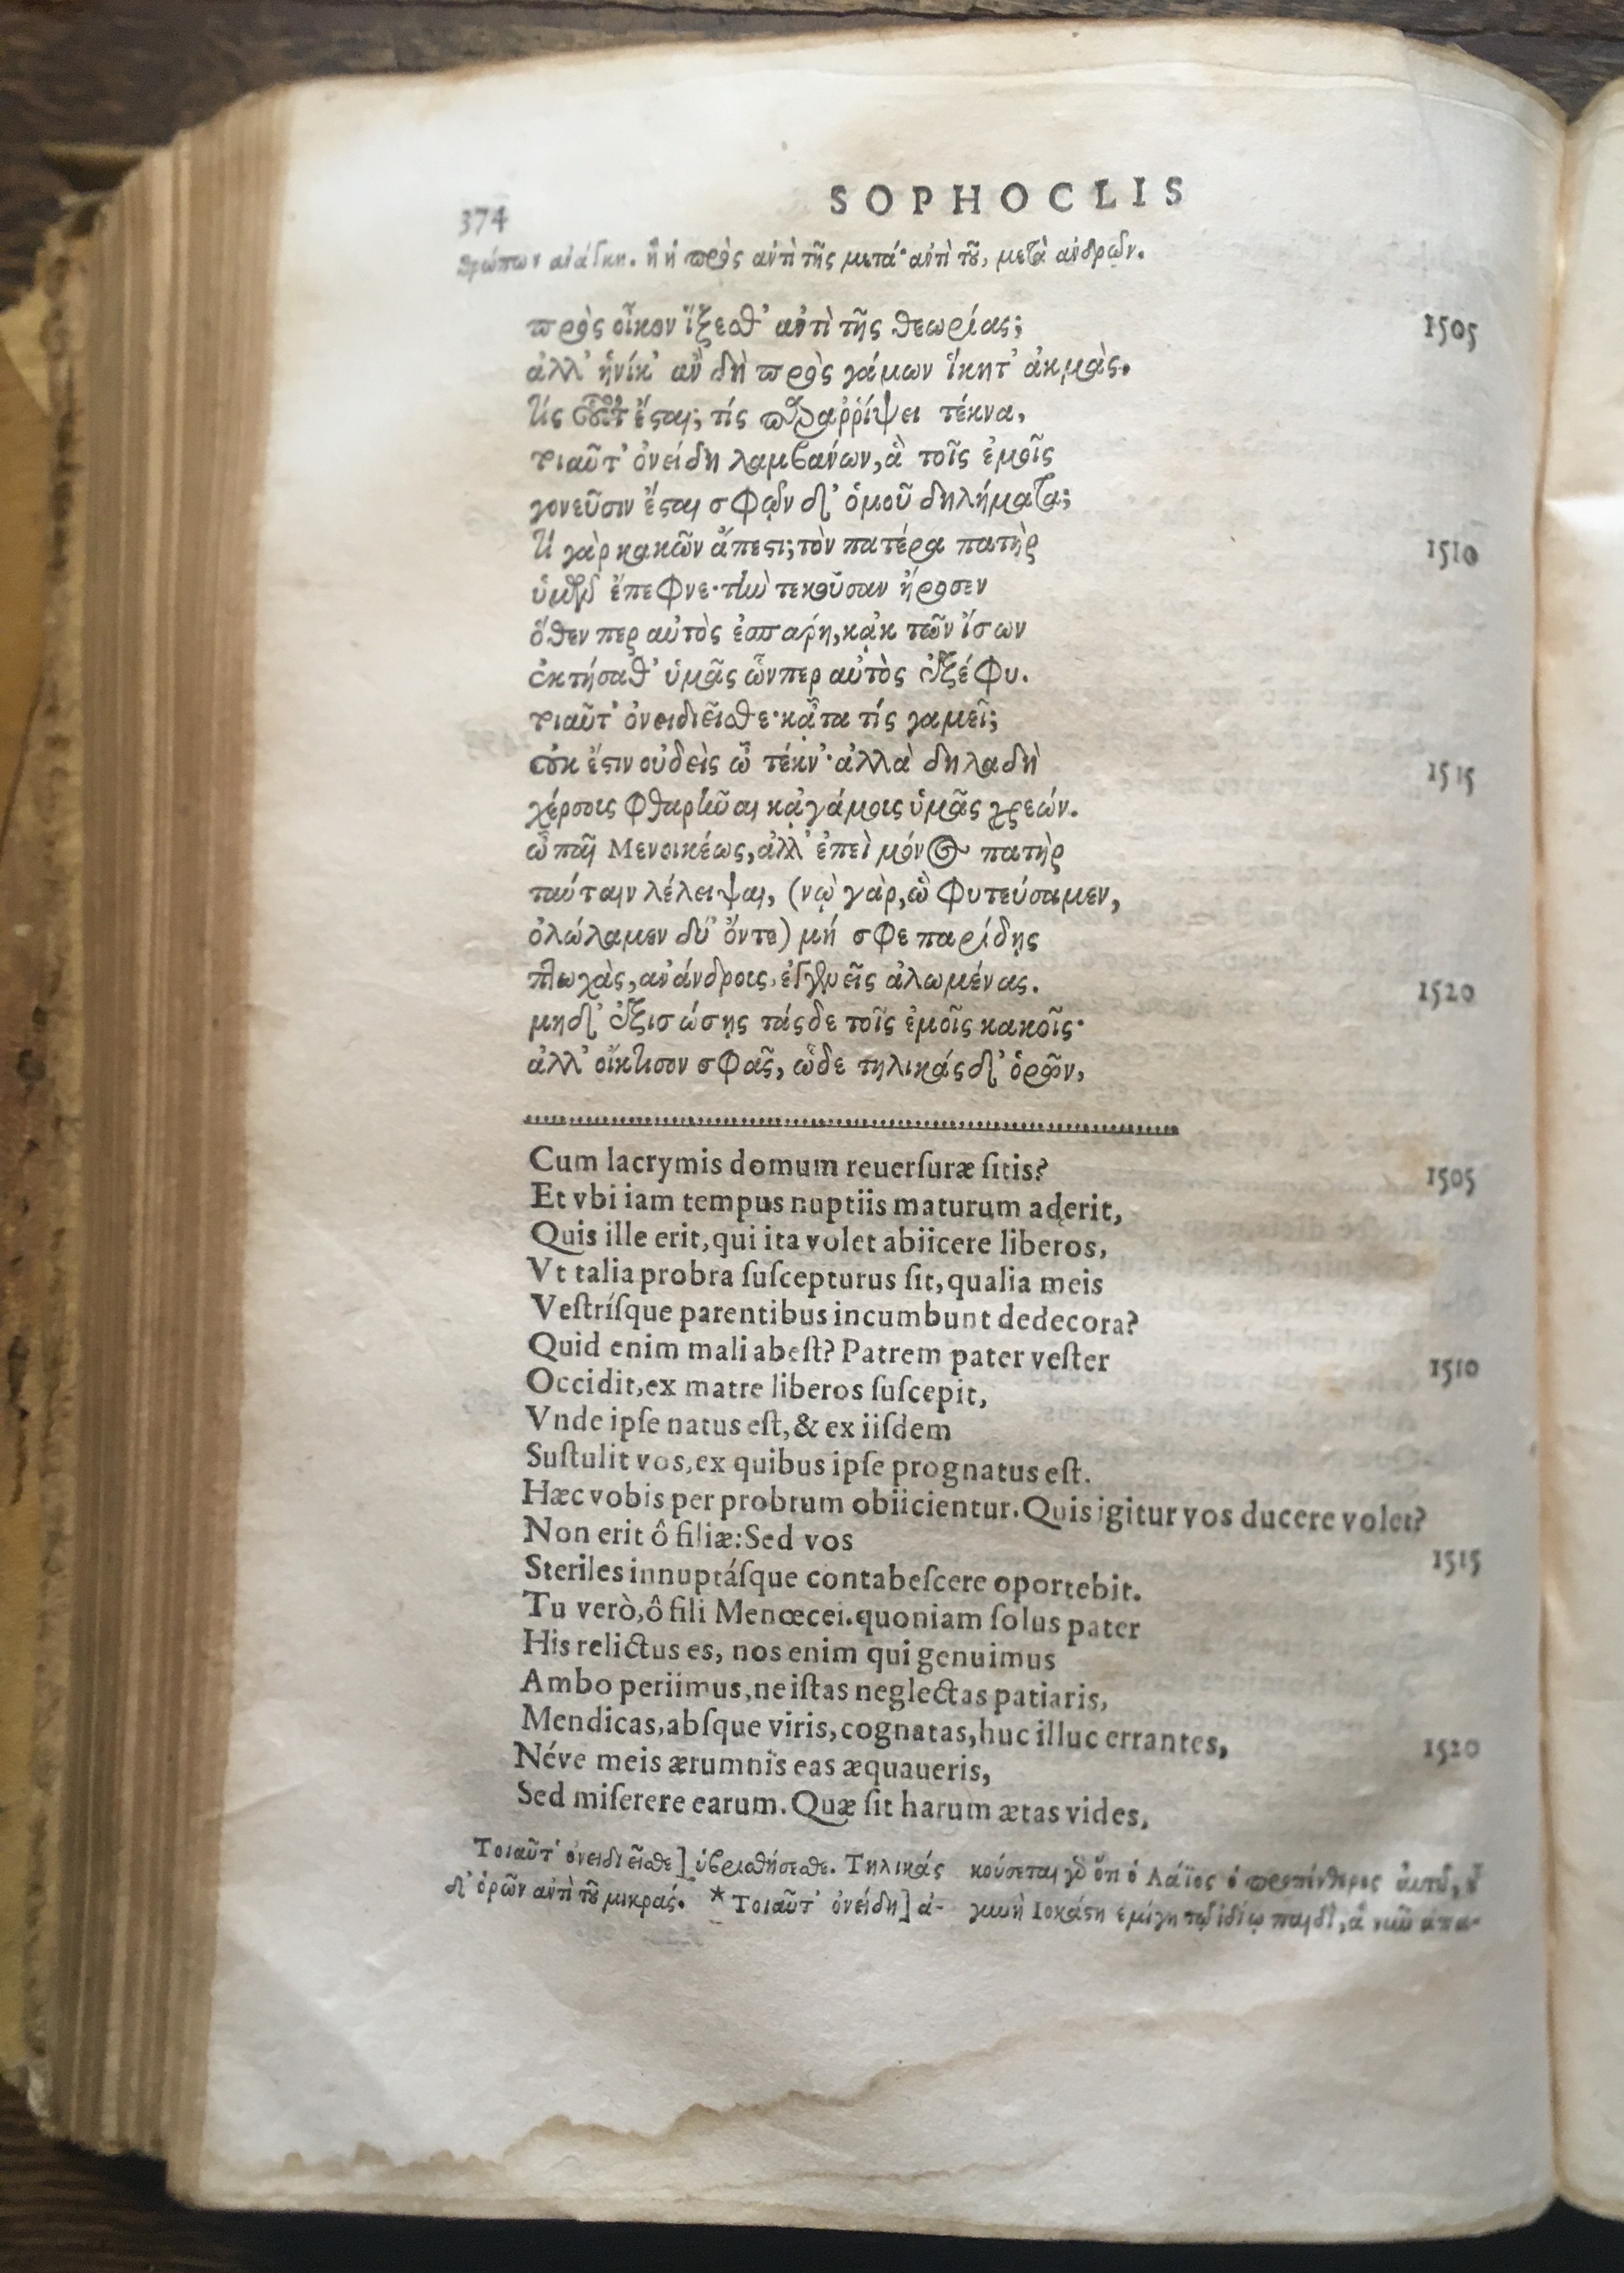 374
SOPHOCLIS
θρώπων ἀνάγκη. ἢ ἡ πρὸς ἀντὶ τῆς μετά· ἀντὶ τοῦ, μετὰ ἀνδρῶν.
πρὸς οἶκον ἵξεσθ' ἀντὶ τῆς θεωρίας;
1505
ἀλλ' ἡνίκ' ἂν δὴ πρὸς γάμων ἵκητ' ἀκμὰς.
τίς οὗτος ἔσται; τίς παραῤῥίψει τέκνα,
τοιαῦτ' ὀνείδη λαμβάνων, ἃ τοῖς ἐμοῖς
γονεῦσιν ἔσται σφῷν δ' ὁμοῦ δηλήματα;
τί γὰρ κακῶν ἄπεστι; τὸν πατέρα πατὴρ
1510
ὑμῶν ἔπεφνε· τὴν τεκοῦσαν ἤροσεν
ὅθεν περ αὐτὸς ἐσπάρη, κᾀκ τῶν ἴσων
ἐκτήσαθ' ὑμᾶς ὧνπερ αὐτὸς ἐξέφυ.
τοιαῦτ' ὀνειδιεῖσθε· κᾆτα τίς γαμεῖ;
οὐκ ἔστιν οὐδεὶς ὦ τέκν'· ἀλλὰ δηλαδὴ
1515
χέρσους φθαρῆναι κᾀγάμους ὑμᾶς χρεών.
ὦ παῖ Μενοικέως, ἀλλ' ἐπεὶ μόνος πατὴρ
ταύταιν λέλειψαι, (νὼ γὰρ, ὣ φυτεύσαμεν,
ὀλώλαμεν δύ' ὄντε) μή σφε παρίδῃς
πτωχὰς, ἀνάνδρους, ἐγγενεῖς ἀλωμένας.
1520
μηδ' ἐξισώσῃς τάςδε τοῖς ἐμοῖς κακοῖς·
ἀλλ' οἴκτισον σφᾶς, ὧδε τηλικάςδ' ὁρῶν,
Cum lacrymis domum reuersuræ sitis?
1505
Et vbi iam tempus nuptiis maturum aderit,
Quis ille erit, qui ita volet abiicere liberos,
Vt talia probra suscepturus sit, qualia meis
Vestrísque parentibus incumbunt dedecora?
Quid enim mali abest? Patrem pater vester
1510
Occidit, ex matre liberos suscepit,
Vnde ipse natus est, & ex iisdem
Sustulit vos, ex quibus ipse prognatus est.
Hæc vobis per probrum obiicientur. Quis igitur vos ducere volet?
Non erit ô filiæ: Sed vos
1515
Steriles innuptásque contabescere oportebit.
Tu verò, ô fili Menœcei. quoniam solus pater
His relictus es, nos enim qui genuimus
Ambo periimus, ne istas neglectas patiaris,
Mendicas, absque viris, cognatas, huc illuc errantes,
1520
Néve meis ærumnis eas æquaueris,
Sed miserere earum. Quæ sit harum ætas vides,
Τοιαῦτ' ὀνειδιεῖσθε] ὑβρισθήσεσθε. Τηλικάς
δ' ὁρῶν ἀντὶ τοῦ μικράς. * Τοιαῦτ' ὀνείδη] ἀ-
κούσεται γὰρ ὅτι ὁ Λάϊος ὁ προπένθερος αὐτοῦ,
γυνὴ Ἰοκάστη ἐμίγη τῷ ἰδίῳ παιδὶ,